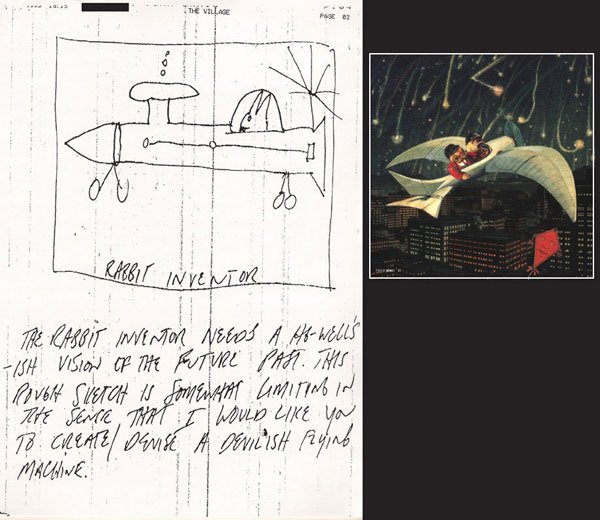 THE VILLAGE
PAGE 02
RABBIT INVENTOR
THE RABBIT INVENTOR NEEDS A HG-WELL'S
-ISH VISION OF THE FUTURE PAST. THIS
ROUGH SKETCH IS SOMEWHAT LIMITING IN
THE SENSE THAT I WOULD LIKE YOU
TO CREATE/DEVISE A DEVILISH FLYING
MACHINE.